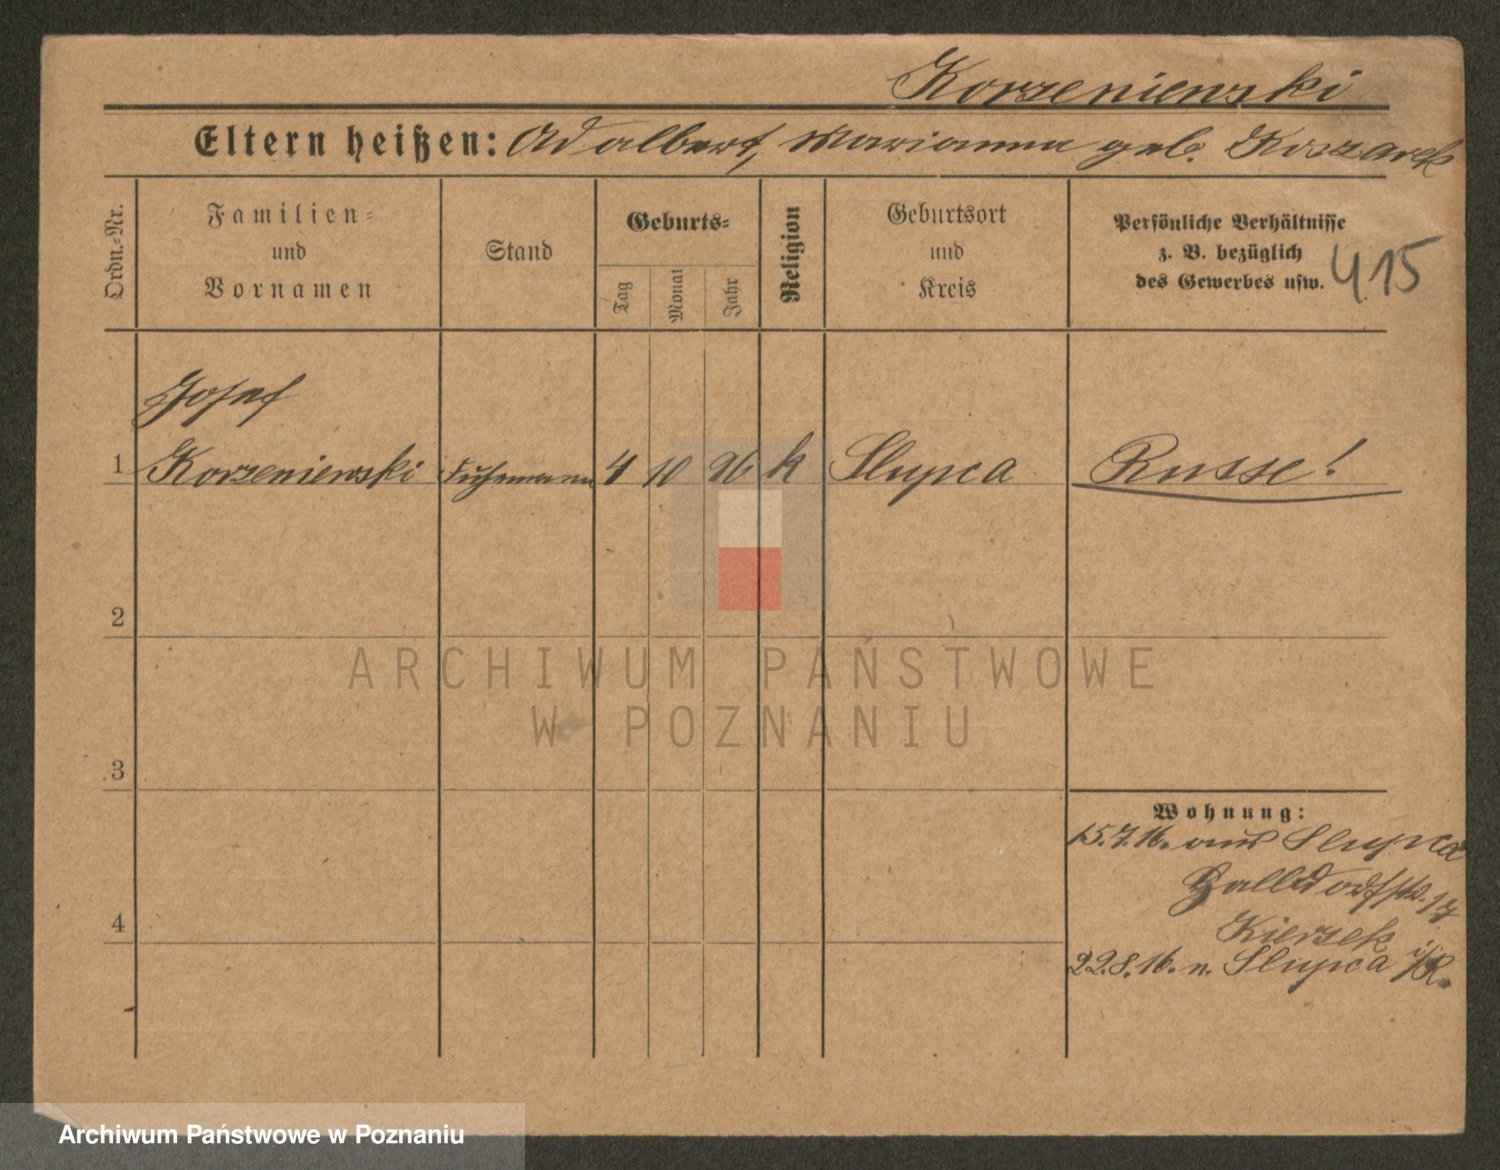 Korzeniewski
Eltern heißen: Adalbert, Marianna geb.
Ordn.-Nr.
Familien-
und
Vornamen
Stand
Geburts-
Tag
Monat
Jahr
Religion
Geburtsort
und
Kreis
Persönliche Verhältnisse
z. B. bezüglich
des Gewerbes usw.
415
Josef
1 Korzeniewski Fuhrmann 4 10 96 k Slupca Russe!
2
ARCHIWUM PAŃSTWOWE
W POZNANIU
3
Wohnung:
15.7.16. aus Slupca
17
4
Kiersek
22.8.16. n. Slupca i/R.
Archiwum Państwowe w Poznaniu